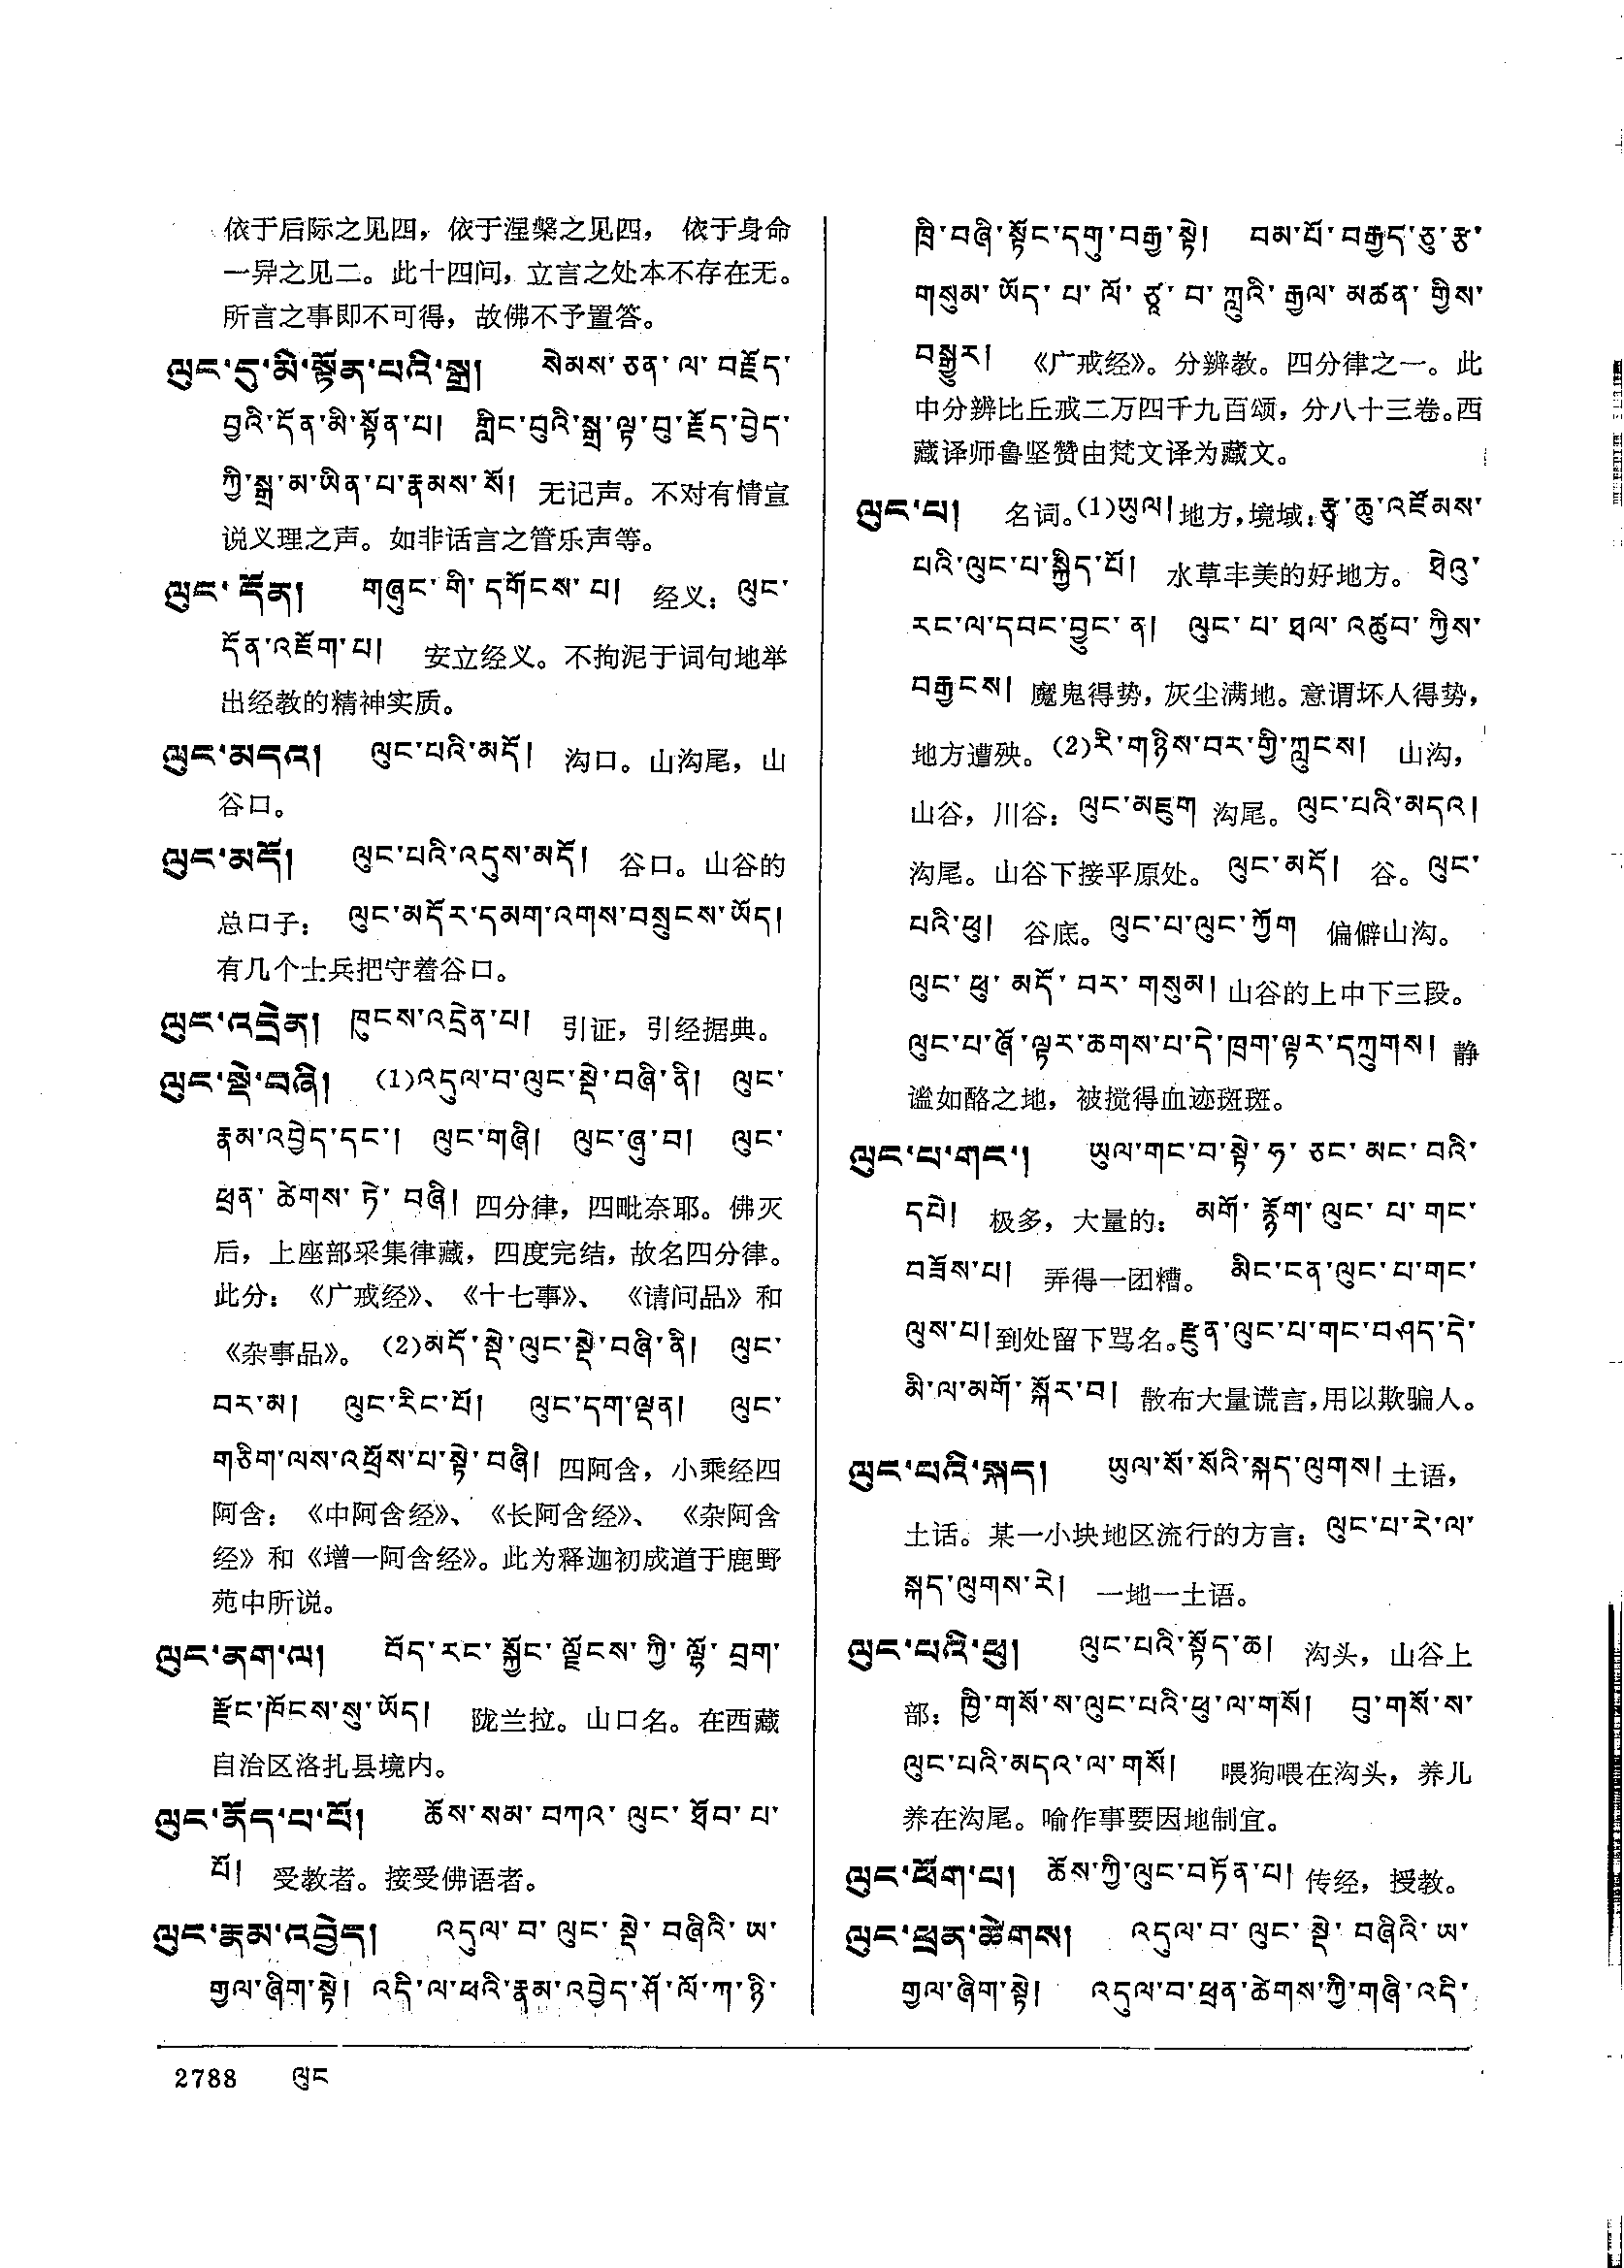 依于后际之见四，依于涅槃之见四， 依于身命
一异之见二。此十四问，立言之处本不存在无。
所言之事即不可得，故佛不予置答。
ལུང་དུ་མི་སྟོན་པའི་སྒྲ། སེམས་ཅན་ལ་བརྗོད་
བྱའི་དོན་མི་སྟོན་པ། གླིང་བུའི་སྒྲ་ལྟ་བུ་རྗོད་བྱེད་
ཀྱི་སྒྲ་མ་ཡིན་པ་རྣམས་སོ། 无记声。不对有情宣
说义理之声。如非话言之管乐声等。
ལུང་དོན། གཞུང་གི་དགོངས་པ། 经义：ལུང་
དོན་འཇོག་པ། 安立经义。不拘泥于词句地举
出经教的精神实质。
ལུང་མདའ། ལུང་པའི་མདོ། 沟口。山沟尾，山
谷口。
ལུང་མདོ། ལུང་པའི་འདུས་མདོ། 谷口。山谷的
总口子： ལུང་མདོར་དམག་འགས་བསྲུངས་ཡོད།
有几个士兵把守着谷口。
ལུང་འདྲེན། ཁུངས་འདྲེན་པ། 引证，引经据典。
ལུང་སྡེ་བཞི། (1)འདུལ་བ་ལུང་སྡེ་བཞི་ནི། ལུང་
རྣམ་འབྱེད་དང་། ལུང་གཞི། ལུང་ཞུ་བ། ལུང་
ཕྲན་ཚེགས་ཏེ་བཞི། 四分律，四毗奈耶。佛灭
后，上座部采集律藏，四度完结，故名四分律。
此分：《广戒经》、《十七事》、 《请问品》和
《杂事品》。 (2)མདོ་སྡེ་ལུང་སྡེ་བཞི་ནི། ལུང་
བར་མ། ལུང་རིང་པོ། ལུང་དག་ལྡན། ལུང་
གཅིག་ལས་འཕྲོས་པ་སྟེ་བཞི། 四阿含，小乘经四
阿含：《中阿含经》、《长阿含经》、 《杂阿含
经》和《增一阿含经》。此为释迦初成道于鹿野
苑中所说。
ལུང་ནག་ལ། བོད་རང་སྐྱོང་ལྗོངས་ཀྱི་ལྷོ་བྲག་
རྫོང་ཁོངས་སུ་ཡོད། 陇兰拉。山口名。在西藏
自治区洛扎县境内。
ལུང་ནོད་པ་པོ། ཆོས་སམ་བཀའ་ལུང་ཐོབ་པ་
པོ། 受教者。接受佛语者。
ལུང་རྣམ་འབྱེད། འདུལ་བ་ལུང་སྡེ་བཞིའི་ཨ་
གྱལ་ཞིག་སྟེ། འདི་ལ་ཕའི་རྣམ་འབྱེད་ཤོ་ལོ་ཀ་ཉི་
ཁྲི་བཞི་སྟོང་དགུ་བརྒྱ་སྟེ། བམ་པོ་བརྒྱད་ཅུ་རྩ་
གསུམ་ཡོད་པ་ལོ་ཙཱ་བ་ཀླུའི་རྒྱལ་མཚན་གྱིས་
བསྒྱུར། 《广戒经》。分辨教。四分律之一。此
中分辨比丘戒二万四千九百颂，分八十三卷。西
藏译师鲁坚赞由梵文译为藏文。
ལུང་པ། 名词。(1)ཡུལ། 地方，境域：རྩྭ་ཆུ་འཛོམས་
པའི་ལུང་པ་སྐྱིད་པོ། 水草丰美的好地方。 ཐེའུ་
རང་ལ་དབང་བྱུང་ན། ལུང་པ་ཐལ་འཚུབ་ཀྱིས་
བརྒྱངས། 魔鬼得势，灰尘满地。意谓坏人得势，
地方遭殃。 (2)རི་གཉིས་བར་གྱི་ཀླུངས། 山沟，
山谷，川谷： ལུང་མཇུག 沟尾。 ལུང་པའི་མདའ།
沟尾。山谷下接平原处。 ལུང་མདོ། 谷。ལུང་
པའི་ཕུ། 谷底。ལུང་པ་ལུང་ཀྱོག 偏僻山沟。
ལུང་ཕུ་མདོ་བར་གསུམ། 山谷的上中下三段。
ལུང་པ་ཞོ་ལྟར་ཆགས་པ་དེ་ཁྲག་ལྟར་དཀྲུགས། 静
谧如酪之地，被搅得血迹斑斑。
ལུང་པ་གང་། ཡུལ་གང་བ་སྟེ་ཧ་ཅང་མང་བའི་
དཔེ། 极多，大量的： མགོ་རྙོག་ལུང་པ་གང་
བཟོས་པ། 弄得一团糟。 མིང་ངན་ལུང་པ་གང་
ལུས་པ། 到处留下骂名。རྫུན་ལུང་པ་གང་བཤད་དེ་
མི་ལ་མགོ་སྐོར་བ། 散布大量谎言，用以欺骗人。
ལུང་པའི་སྐད། ཡུལ་སོ་སོའི་སྐད་ལུགས། 土语，
土话。某一小块地区流行的方言： ལུང་པ་རེ་ལ་
སྐད་ལུགས་རེ། 一地一土语。
ལུང་པའི་ཕུ། ལུང་པའི་སྟོད་ཆ། 沟头，山谷上
部： ཁྱི་གསོ་ས་ལུང་པའི་ཕུ་ལ་གསོ། བུ་གསོ་ས་
ལུང་པའི་མདའ་ལ་གསོ། 喂狗喂在沟头，养儿
养在沟尾。喻作事要因地制宜。
ལུང་ཕོག་པ། ཆོས་ཀྱི་ལུང་བཏོན་པ། 传经，授教。
ལུང་ཕྲན་ཚེགས། འདུལ་བ་ལུང་སྡེ་བཞིའི་ཨ་
གྱལ་ཞིག་སྟེ། འདུལ་བ་ཕྲན་ཚེགས་ཀྱི་གཞི་འདི་
2788 ལུང